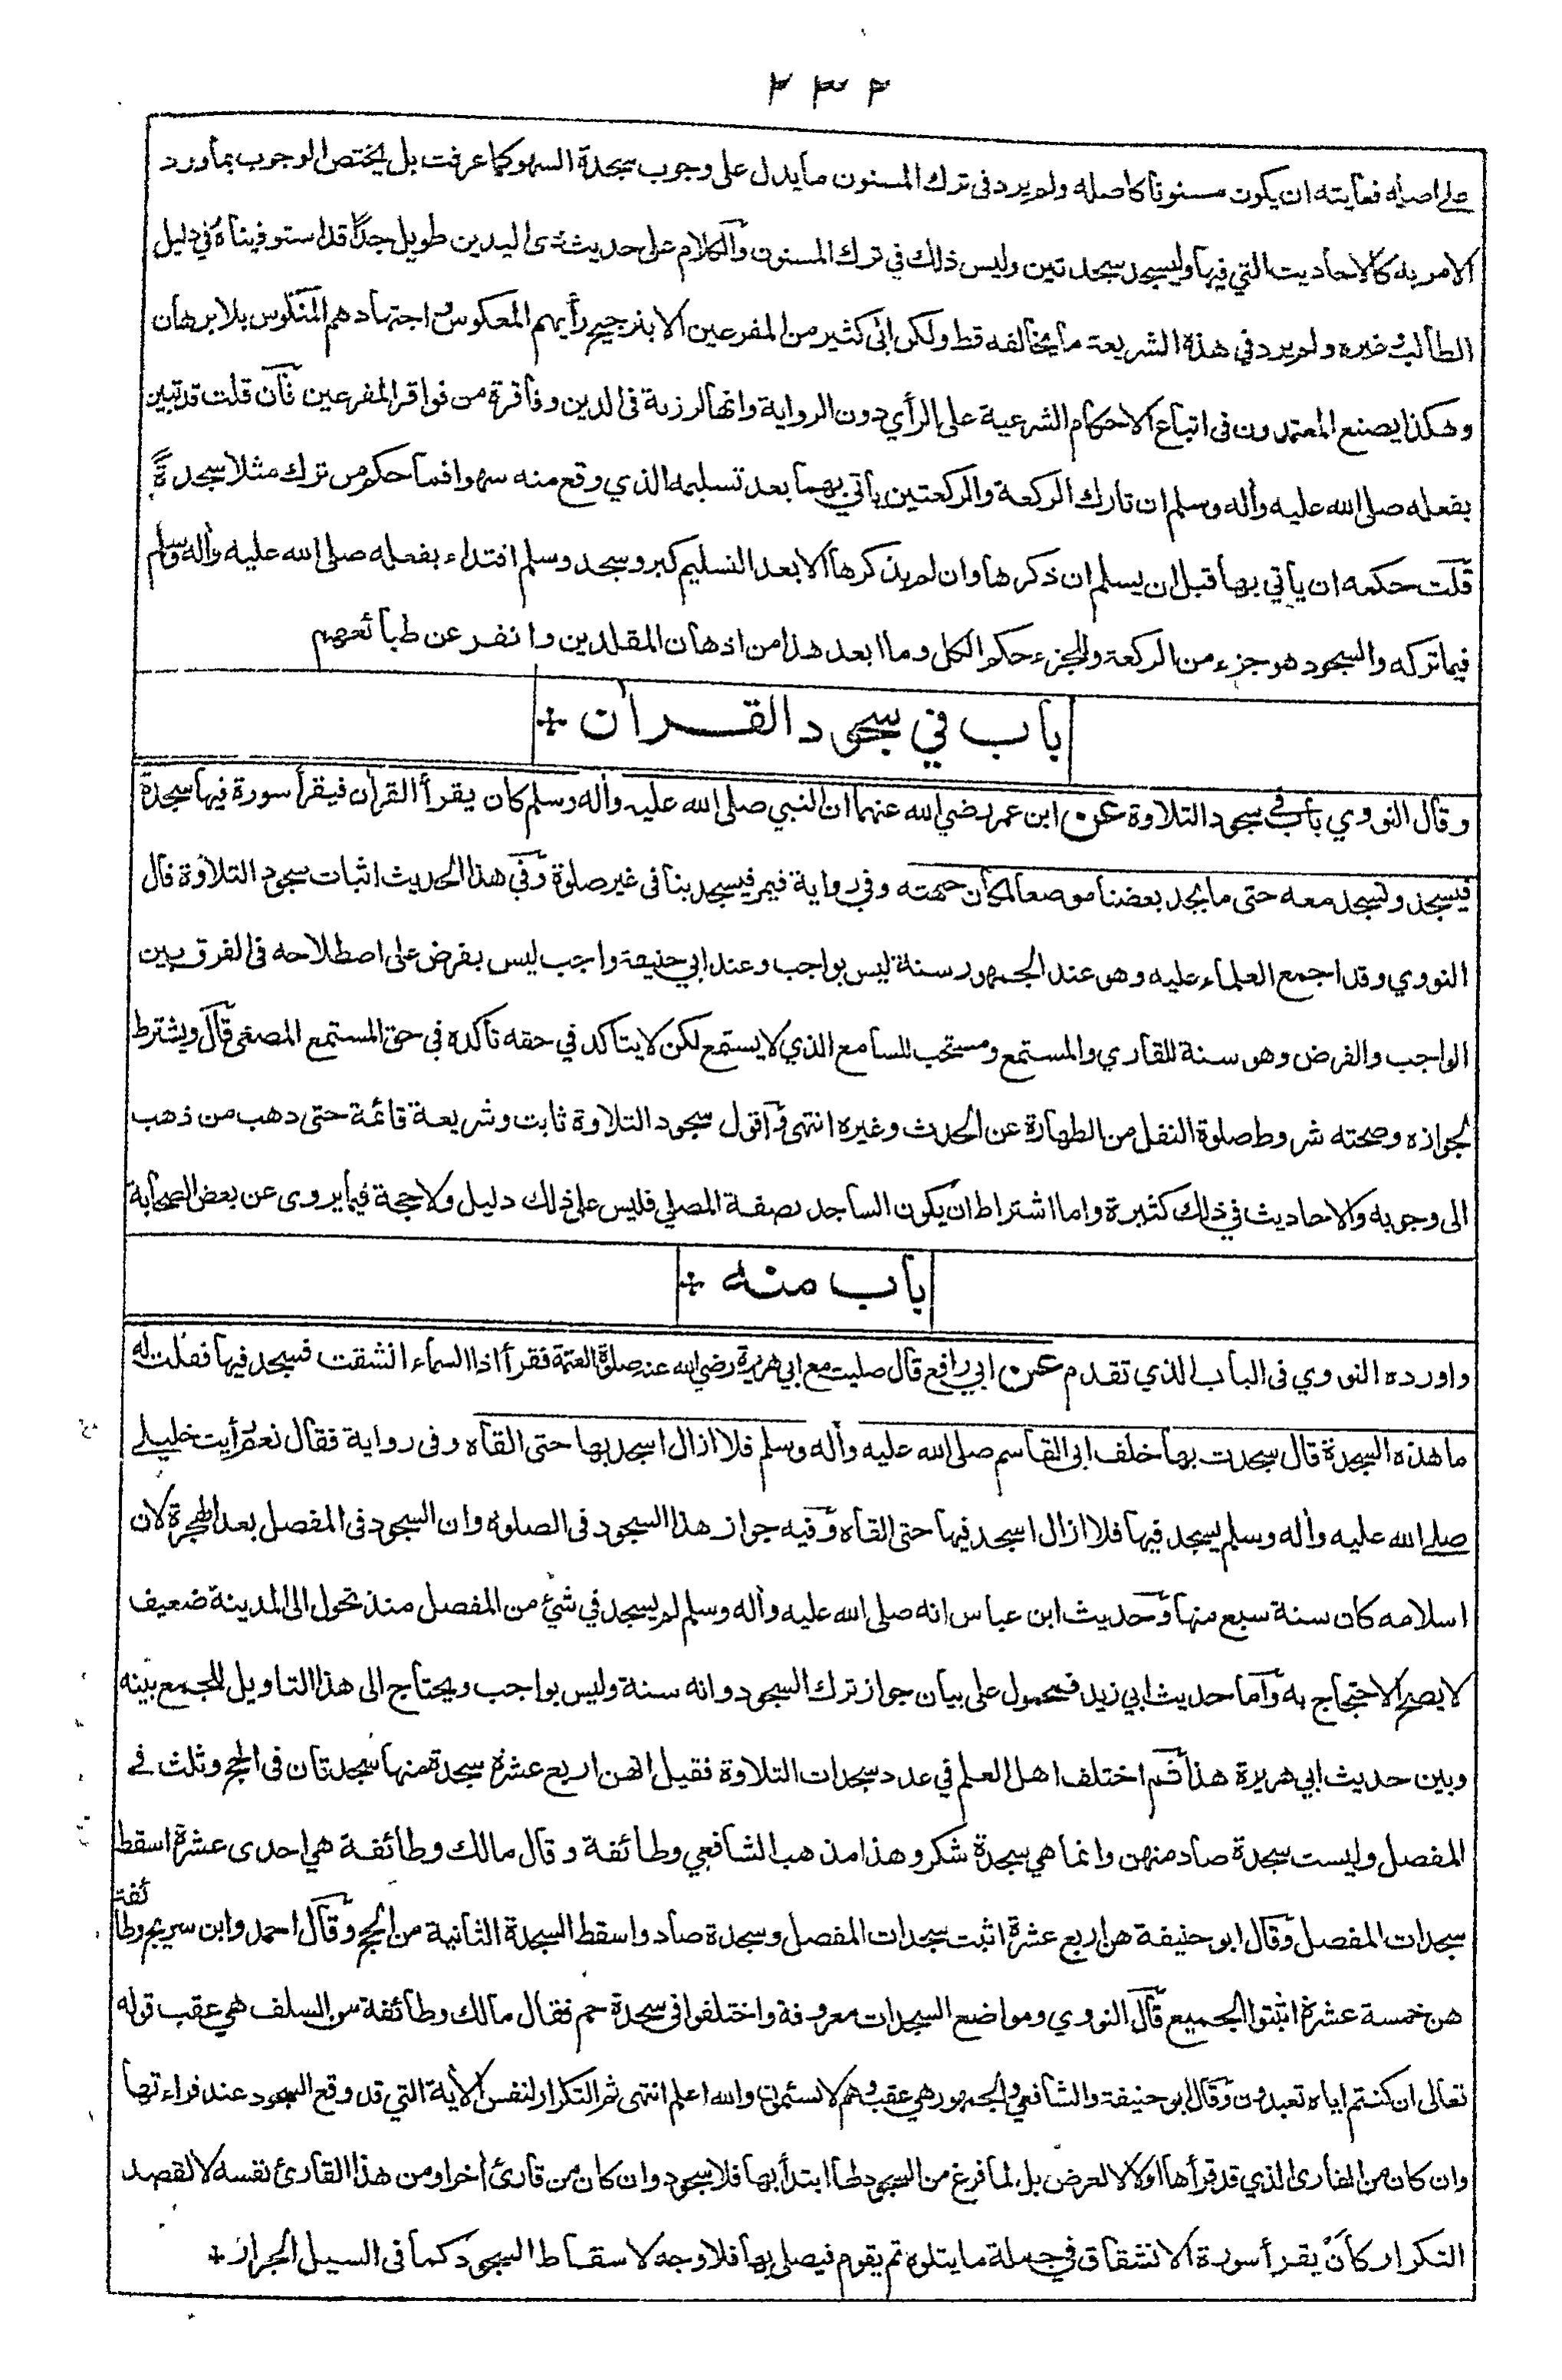 ٢٣٢
على اصله فغايته ان يكون مسنونا كاصله ولم يرد في ترك المسنون ما يدل على وجوب سجدة السهو كما عرفت بل يختص الوجوب بما ورد
الامر به كالاحاديث التي فيها وليسجد سجدتين وليس ذلك في ترك المسنون والكلام على حديث ذى اليدين طويل جدًّا قد استوفيناه في دليل
الطالب وغيره ولم يرد في هذه الشريعة ما يخالفه قط ولكن ابى كثير من المفرعين الا بترجيح رأيهم المعكوس واجتهادهم المنكوس بلا برهان
وهكذا يصنع المعتمدون في اتباع الاحكام الشرعية على الرأي دون الرواية وانها لرزية في الدين وفاقرة من فواقر المفرعين فان قلت قد تبين
بفعله صلى الله عليه وأله وسلم ان تارك الركعة والركعتين يأتي بهما بعد تسليمه الذي وقع منه سهوا فما حكم من ترك مثلا سجدةً
قلت حكمه ان يأتي بها قبل ان يسلم ان ذكرها وان لم يذكرها الا بعد التسليم كبر وسجد وسلم اقتداء بفعله صلى الله عليه وأله وسلم
فيما تركه والسجود هو جزء من الركعة وللجزء حكم الكل وما ابعد هذا من اذهان المقلدين وانفر عن طبائعهم
باب في سجود القرأن
وقال النووي باب في سجود التلاوة عن ابن عمر رضي الله عنهما ان النبي صلى الله عليه وأله وسلم كان يقرأ القرأن فيقرأ سورة فيها سجدة
فيسجد ونسجد معه حتى ما يجد بعضنا موضعا لمكان جبهته وفي رواية فيمر فيسجد بنا في غير صلوة وفي هذا الحديث اثبات سجود التلاوة قال
النووي وقد اجمع العلماء عليه وهو عند الجمهور سنة ليس بواجب وعند ابي حنيفة واجب ليس بفرض على اصطلاحه في الفرق بين
الواجب والفرض وهو سنة للقاري والمستمع ومستحب للسامع الذي لا يستمع لكن لا يتاكد في حقه تأكده في حق المستمع المصغى قال ويشترط
لجوازه وصحته شروط صلوة النفل من الطهارة عن الحدث وغيره انتهى واقول سجود التلاوة ثابت وشريعة قائمة حتى ذهب من ذهب
الى وجوبه والاحاديث في ذلك كثيرة واما اشتراط ان يكون الساجد بصفة المصلي فليس على ذلك دليل ولا حجة فيما يروى عن بعض الصحابة
باب منه
واورده النووي في الباب الذي تقدم عن ابي رافع قال صليت مع ابي هريرة رضي الله عنه صلوة العتمة فقرأ اذا السماء انشقت فسجد فيها فقلت له
ما هذه السجدة قال سجدت بها خلف ابى القاسم صلى الله عليه وأله وسلم فلا ازال اسجد بها حتى القاه وفي رواية فقال نعم رأيت خليلي
صلى الله عليه وأله وسلم يسجد فيها فلا ازال اسجد فيها حتى القاه وفيه جواز هذا السجود في الصلوة وان السجود في المفصل بعد الهجرة لان
اسلامه كان سنة سبع منها وحديث ابن عباس انه صلى الله عليه وأله وسلم لم يسجد في شئ من المفصل منذ تحول الى المدينة ضعيف
لا يصح الاحتجاج به واما حديث ابي زيد فمحمول على بيان جواز ترك السجود وانه سنة وليس بواجب ويحتاج الى هذا التاويل للجمع بينه
وبين حديث ابي هريرة هذا ثم اختلف اهل العلم في عدد سجدات التلاوة فقيل انهن اربع عشرة سجدة منها سجدتان في الحج وثلث في
المفصل وليست سجدة صاد منهن وانما هي سجدة شكر وهذا مذهب الشافعي وطائفة وقال مالك وطائفة هي احدى عشرة اسقط
سجدات المفصل وقال ابو حنيفة هن اربع عشرة اثبت سجدات المفصل وسجدة صاد واسقط السجدة الثانية من الحج وقال احمد وابن سريج وطائفة
هن خمسة عشرة اثبتوا الجميع قال النووي ومواضع السجدات معروفة واختلفوا في سجدة حم فقال مالك وطائفة من السلف هي عقب قوله
تعالى ان كنتم اياه تعبدون وقال ابو حنيفة والشافعي والجمهور هي عقب وهم لا يسئمون والله اعلم انتهى ثم التكرار لنفس الأية التي قد وقع السجود عند قراءتها
وان كان من القارئ الذي قد قرأها اولا لا لعرض بل لما فرغ من السجود لها ابتدأ بها فلا سجود وان كان من قارئ أخر او من هذا القارئ نفسه لا لقصد
التكرار كأن يقرأ سورة الانشقاق في جملة ما يتلوه ثم يقوم فيصلي بها فلا وجه لاسقاط السجود كما في السيل الجرار